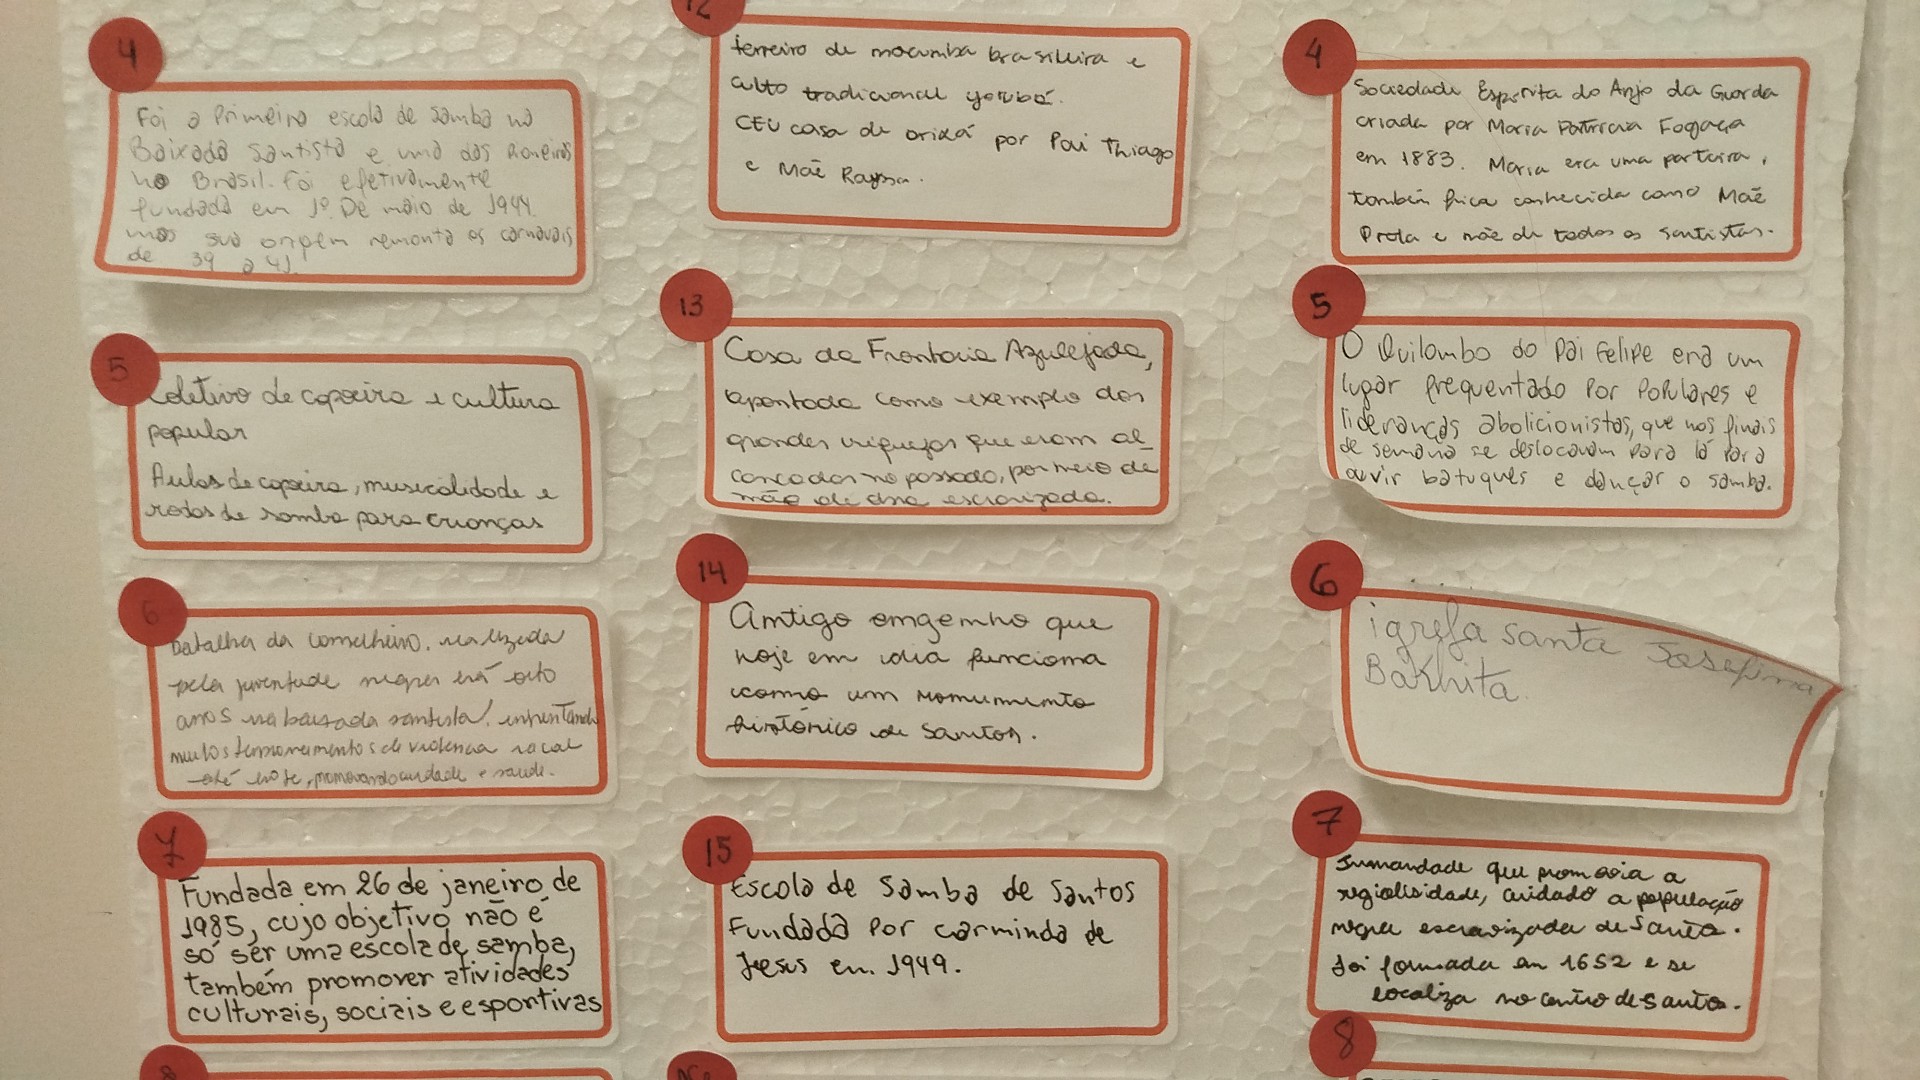 4
Foi a Primeira escola de samba na
Baixada Santista e uma das Pioneiras
no Brasil. Foi efetivamente
fundada em 1º De maio de 1944.
mas sua origem remonta os carnavais
de 39 a 41.
5
Coletivo de capoeira e cultura
popular
Aulas de capoeira, musicalidade e
rodas de samba para crianças
6
Batalha da conselheiro, realizada
pela juventude negra há oito
anos na baixada santista, enfrentando
muitos de violência racial
até hoje, promovendo e saúde.
7
Fundada em 26 de janeiro de
1985, cujo objetivo não é
só ser uma escola de samba,
também promover atividades
culturais, sociais e esportivas
8
12
terreiro de macumba brasileira e
culto tradicional yorubá.
CEU casa de orixá por Pai Thiago
e Mãe Rayssa.
13
Casa da Frontaria Azulejada,
apontada como exemplo das
grandes riquezas que eram al-
cançadas no passado, por meio de
mão de obra escravizada.
14
Antigo engenho que
hoje em dia funciona
como um monumento
histórico de Santos.
15
Escola de Samba de Santos
Fundada Por Carminda de
Jesus em 1949.
4
Sociedade Espirita do Anjo da Guarda
criada por Maria Patricia Fogaça
em 1883. Maria era uma parteira,
também fica conhecida como Mãe
Preta e mãe de todos os santistas.
5
O Quilombo do Pai Felipe era um
lugar frequentado Por Populares e
lideranças abolicionistas, que nos finais
de semana se deslocavam Para lá Para
ouvir batuques e dançar o samba.
6
igreja santa Josefina
Bakhita.
7
Irmandade que promovia a
religiosidade, cuidado a população
negra escravizada de Santos.
foi formada em 1652 e se
localiza no centro de santos.
8